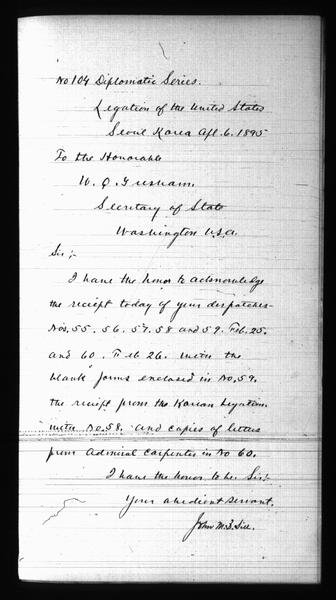 No 104 Diplomatic Series.
Legation of the United States
Seoul Korea Apl. 6. 1895
To the Honorable
W. Q. Gresham,
Secretary of State
Washington U.S.A.
Sir;-
I have the honor to acknowledge
the reciept today of your despatches
Nos. 55. 56. 57. 58 and 59. Feb. 25.
and 60. Feb 26. with the
blank forms enclosed in No. 59.
the reciept from the Korean Legation
with No. 58. and copies of letters
from Admiral Carpenter in No 60.
I have the honor to be Sir;-
Your obedient servant.
John M. B. Sill.